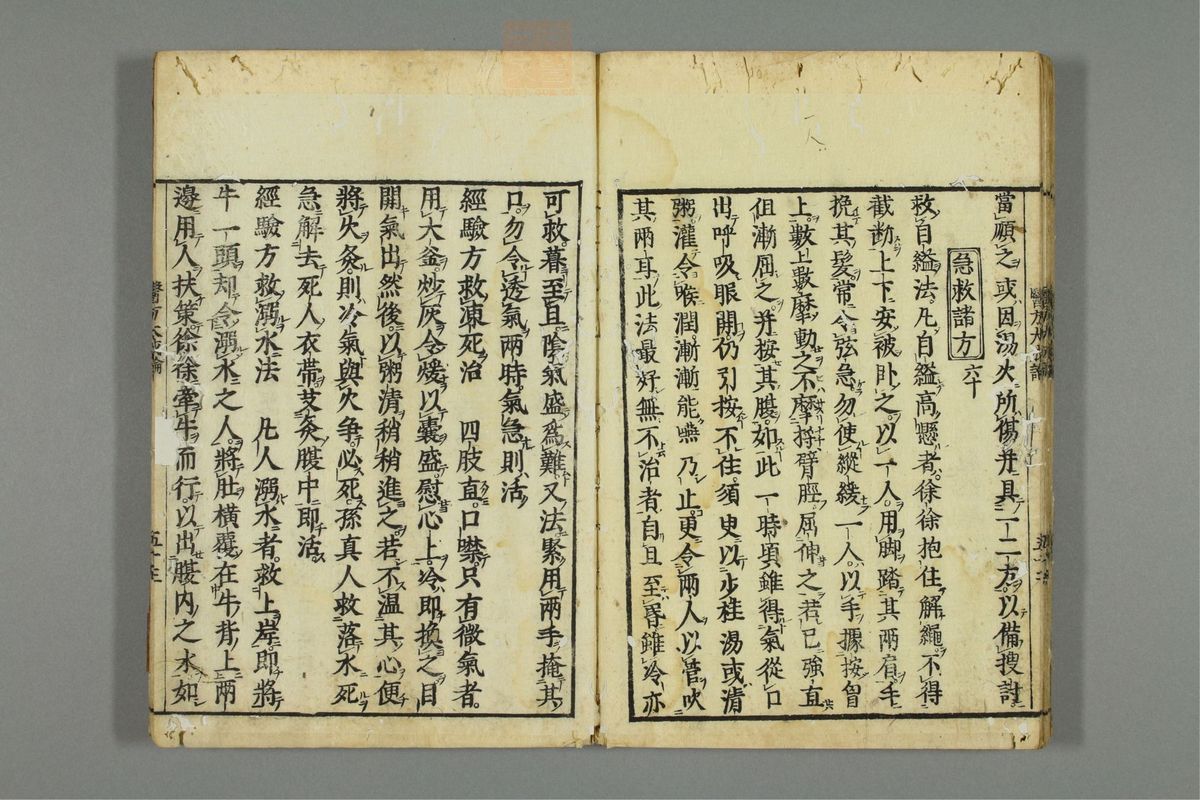 當頑之或因湯火所傷并具一二方以備搜討
急救諸方 六十
救自縊法凡自縊高懸者徐徐抱住解繩不得
截斷上下安被臥之以一人用脚踏其兩肩手
挽其髮常令弦急勿使縱緩一人以手據按胷
上數上數摩動之不摩捋臂脛屈伸之若已強直
但漸屈之并按其腹如此一時頃雖得氣從口
出呼吸眼開仍引按不住須臾以少桂湯或清
粥灌令喉潤漸漸能嚥乃止更令兩人以管吹
其兩耳此法最好無不治者自旦至暮雖冷亦
可救暮至旦陰氣盛為難又法緊用兩手掩其
口勿令透氣兩時氣急則活
經驗方救凍死治 四肢直口噤只有微氣者
用大釜炒灰令煖以囊盛慰心上冷即換之目
開氣出然後以粥清稍稍進之若不温其心便
將火灸則冷氣與火争必死孫真人救落水死
急解去死人衣帶艾灸臍中即活
經驗方救溺水法 凡人溺水者救上岸即將
牛一頭却令溺水之人將肚橫覆在牛背上兩
邊用人扶策徐徐牽牛而行以出腹内之水如
五十三